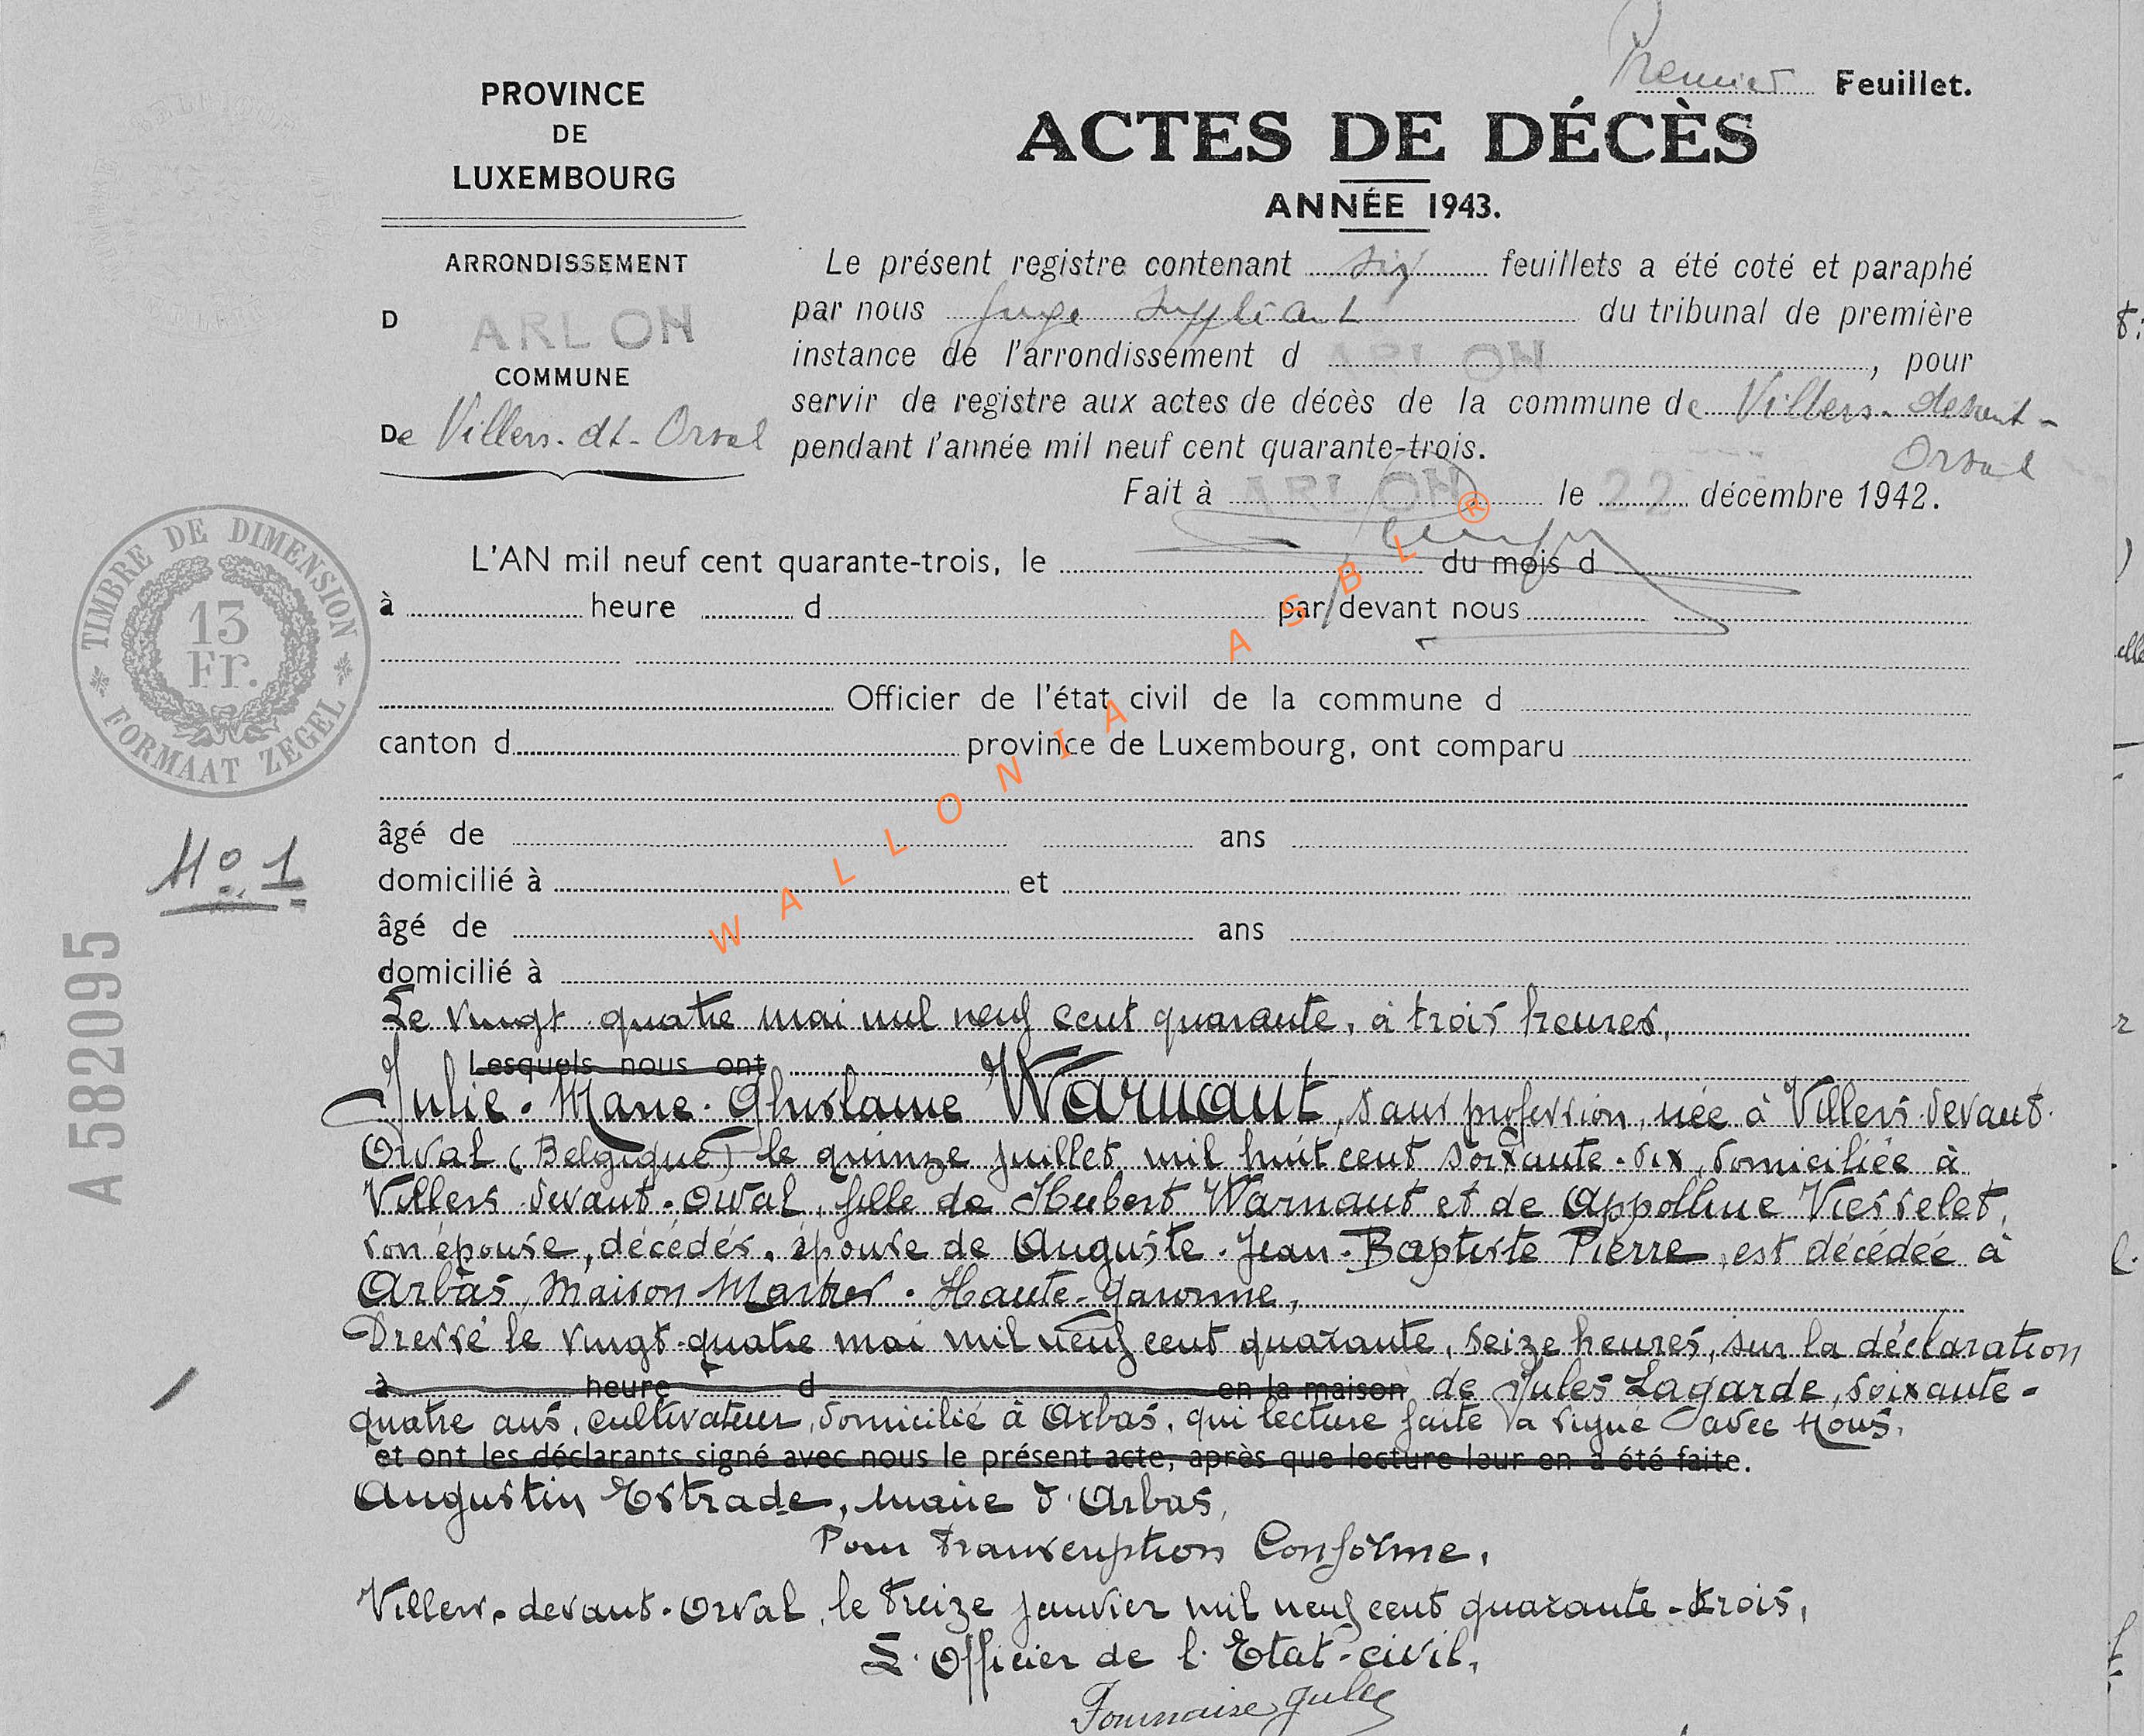 Premier Feuillet.
PROVINCE
DE
LUXEMBOURG
ARRONDISSEMENT
D ARLON
COMMUNE
De Villers-dt-Orval
ACTES DE DÉCÈS
ANNÉE 1943.
Le présent registre contenant six feuillets a été coté et paraphé
par nous Juge Suppléant du tribunal de première
instance de l'arrondissement d ARLON, pour
servir de registre aux actes de décès de la commune de Villers-devant-
Orval
pendant l'année mil neuf cent quarante-trois.
Fait à ARLON le 22 décembre 1942.
TIMBRE DE DIMENSION
13
Fr.
FORMAAT ZEGEL
No 1
A 582095
L'AN mil neuf cent quarante-trois, le du mois d
à heure d par devant nous
Officier de l'état civil de la commune d
canton d province de Luxembourg, ont comparu
âgé de ans
domicilié à et
âgé de ans
domicilié à
WALLONIA ASBL ®
Le vingt-quatre mai mil neuf cent quarante, à trois heures,
Lesquels nous ont
Julie-Marie-Ghislaine Warnant, sans profession, née à Villers-devant-
Orval (Belgique) le quinze juillet mil huit cent soixante-six, domiciliée à
Villers-devant-Orval, fille de Hubert Warnant et de Appolline Viesselet,
son épouse, décédés, épouse de Auguste-Jean-Baptiste Pierre, est décédée à
Arbas, Maison Martres. Haute-Garonne,
Dressé le vingt-quatre mai mil neuf cent quarante, seize heures, sur la déclaration
à heure d en la maison de Jules Lagarde, soixante-
quatre ans, cultivateur, domicilié à Arbas, qui lecture faite a signé avec Nous,
et ont les déclarants signé avec nous le présent acte, après que lecture leur en a été faite.
Augustin Estrade, maire d'Arbas,
Pour transcription Conforme,
Villers-devant-Orval, le treize janvier mil neuf cent quarante-trois,
L'Officier de l'Etat-civil,
Fournaise Jules